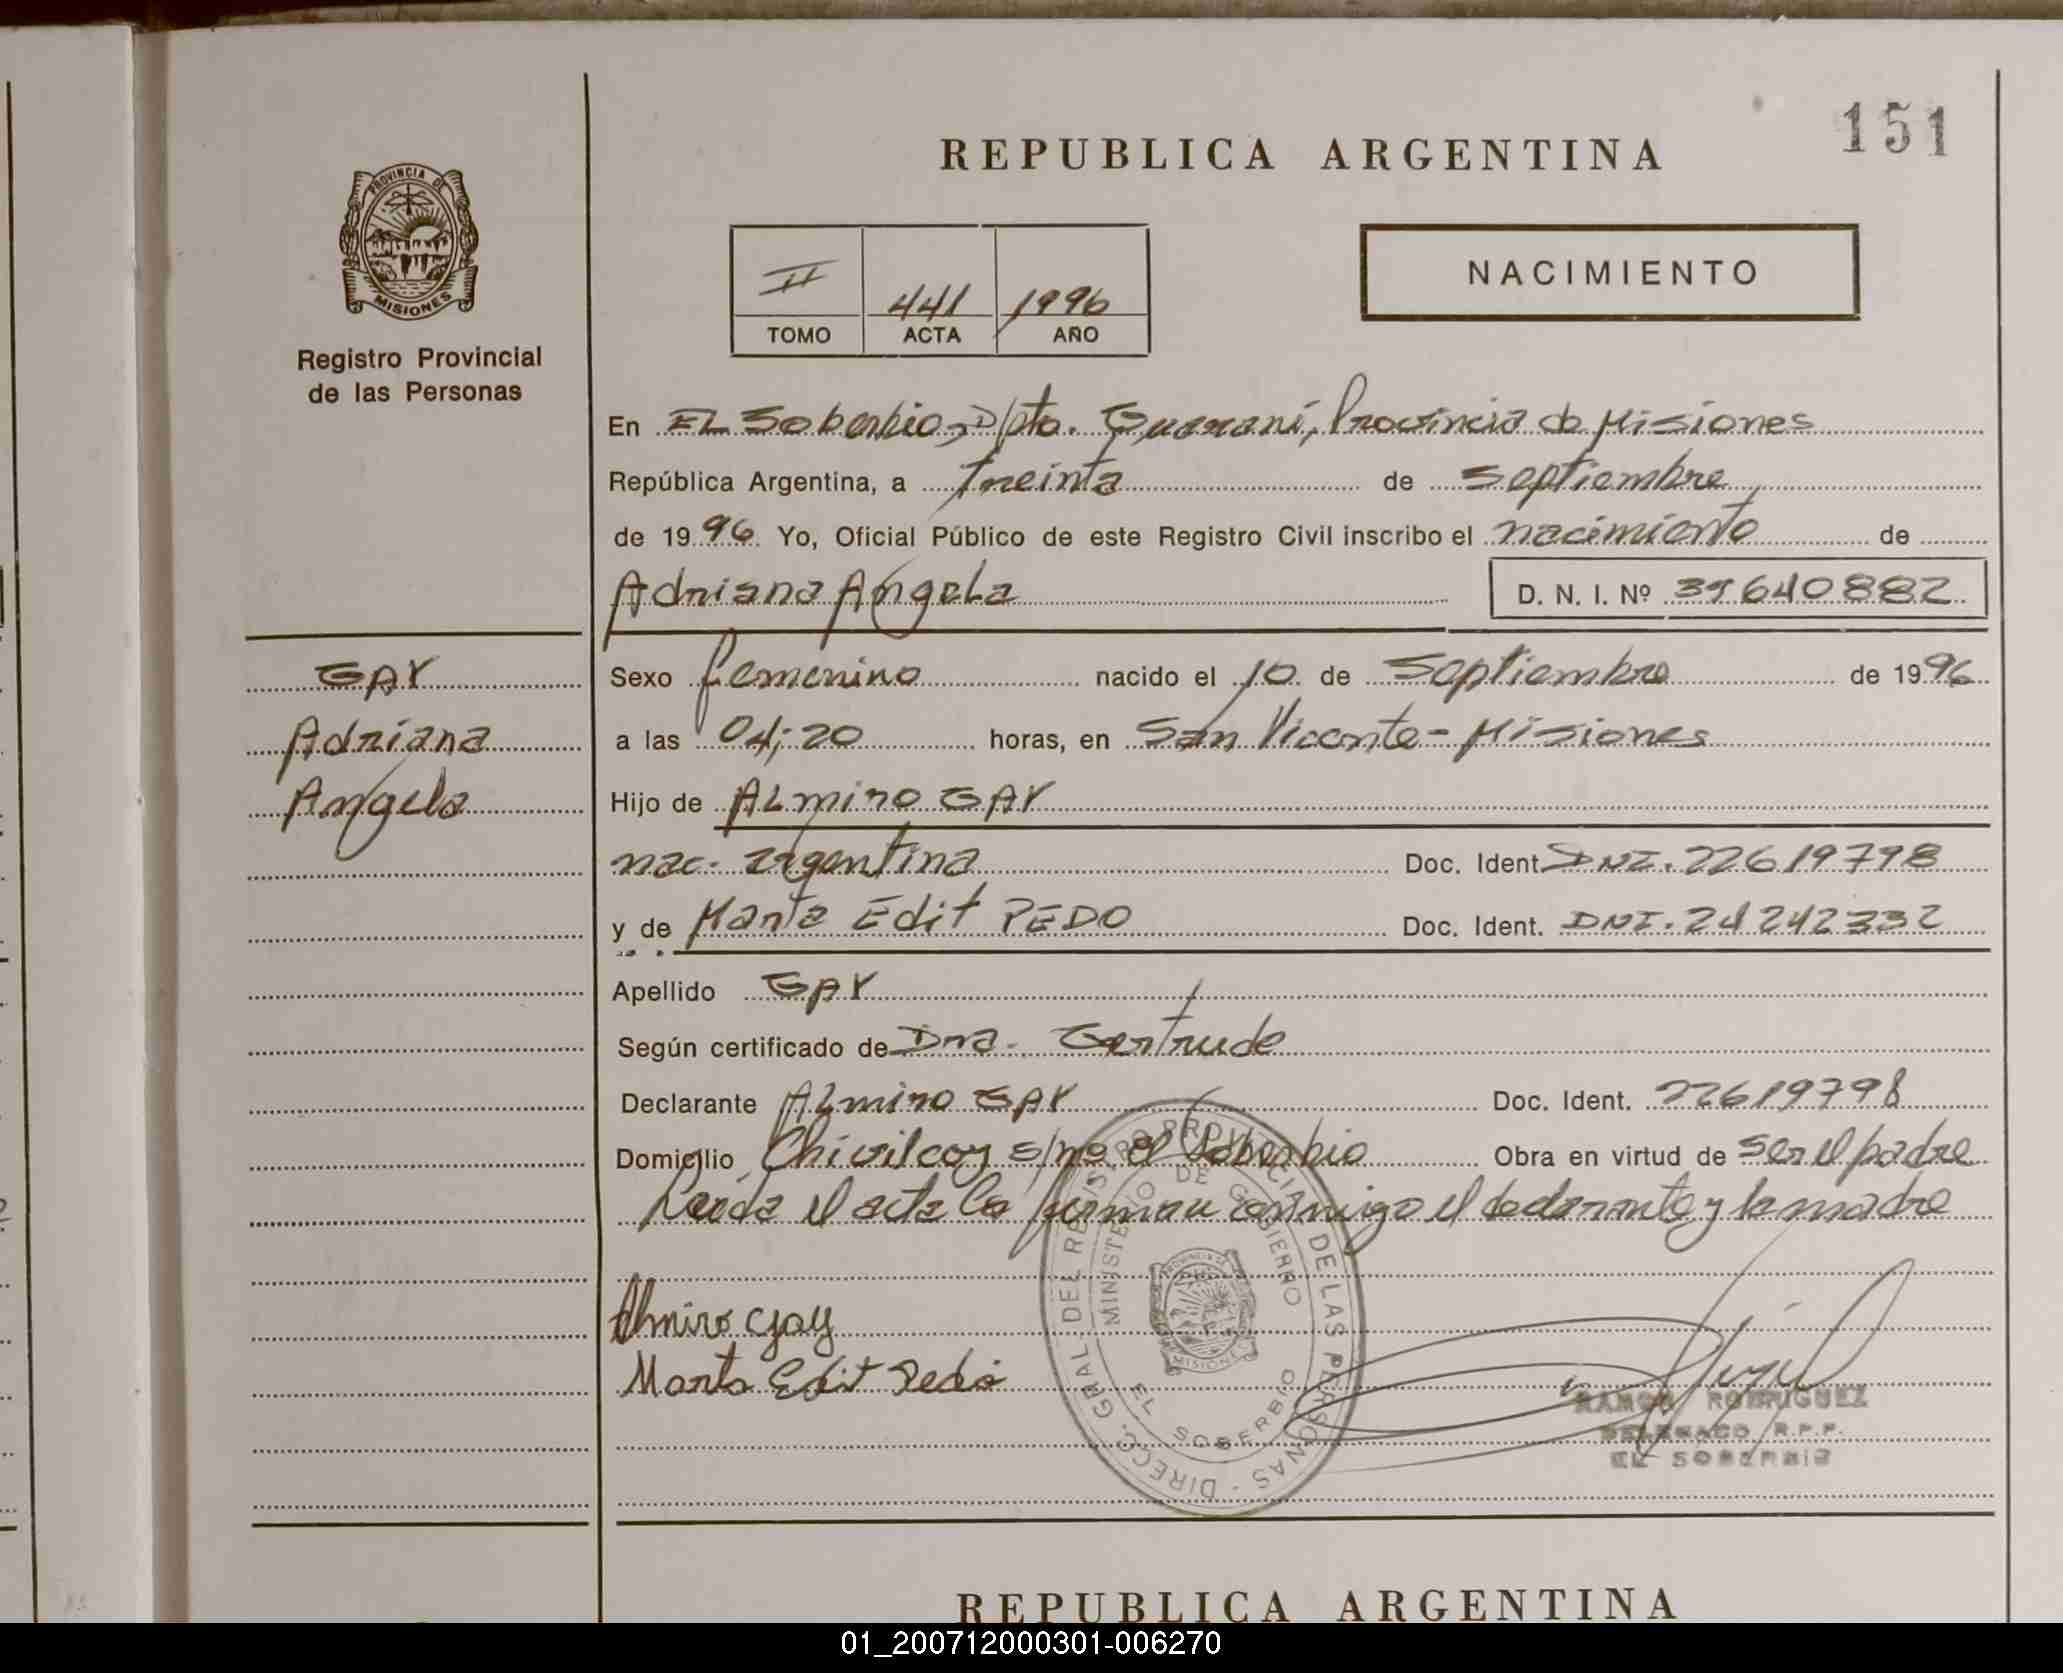 151
REPUBLICA ARGENTINA
PROVINCIA DE
MISIONES
Registro Provincial
de las Personas
NACIMIENTO
II 441 1996
TOMO ACTA AÑO
En EL Soberbio, D/pto. Guaraní, Provincia de Misiones
República Argentina, a treinta de septiembre
de 1996 Yo, Oficial Público de este Registro Civil inscribo el nacimiento de
Adriana Angela D. N. I. Nº 39640882
GAY
Adriana
Angela
Sexo femenino nacido el 10 de Septiembre de 1996
a las 04;20 horas, en San Vicente - Misiones
Hijo de ALmiro GAY
nac. argentina Doc. Ident DNI. 22619798
y de Marta Edit PEDO Doc. Ident. DNI. 24242332
Apellido GAY
Según certificado de Dra. Gertrude
Declarante ALmiro GAY Doc. Ident. 22619798
Domicilio Chivilcoy s/no el Soberbio Obra en virtud de ser el padre
Leída el acta la firman conmigo el declarante y la madre
Almiro Gay
Marta Edit Pedó
DIRECC. GRAL. DEL REGISTRO PROVINCIAL DE LAS PERSONAS
MINISTERIO DE GOBIERNO
MISIONES
EL SOBERBIO
RAMON RODRIGUEZ
DELEGADO R.P.P.
EL SOBERBIO
REPUBLICA ARGENTINA
01_200712000301-006270